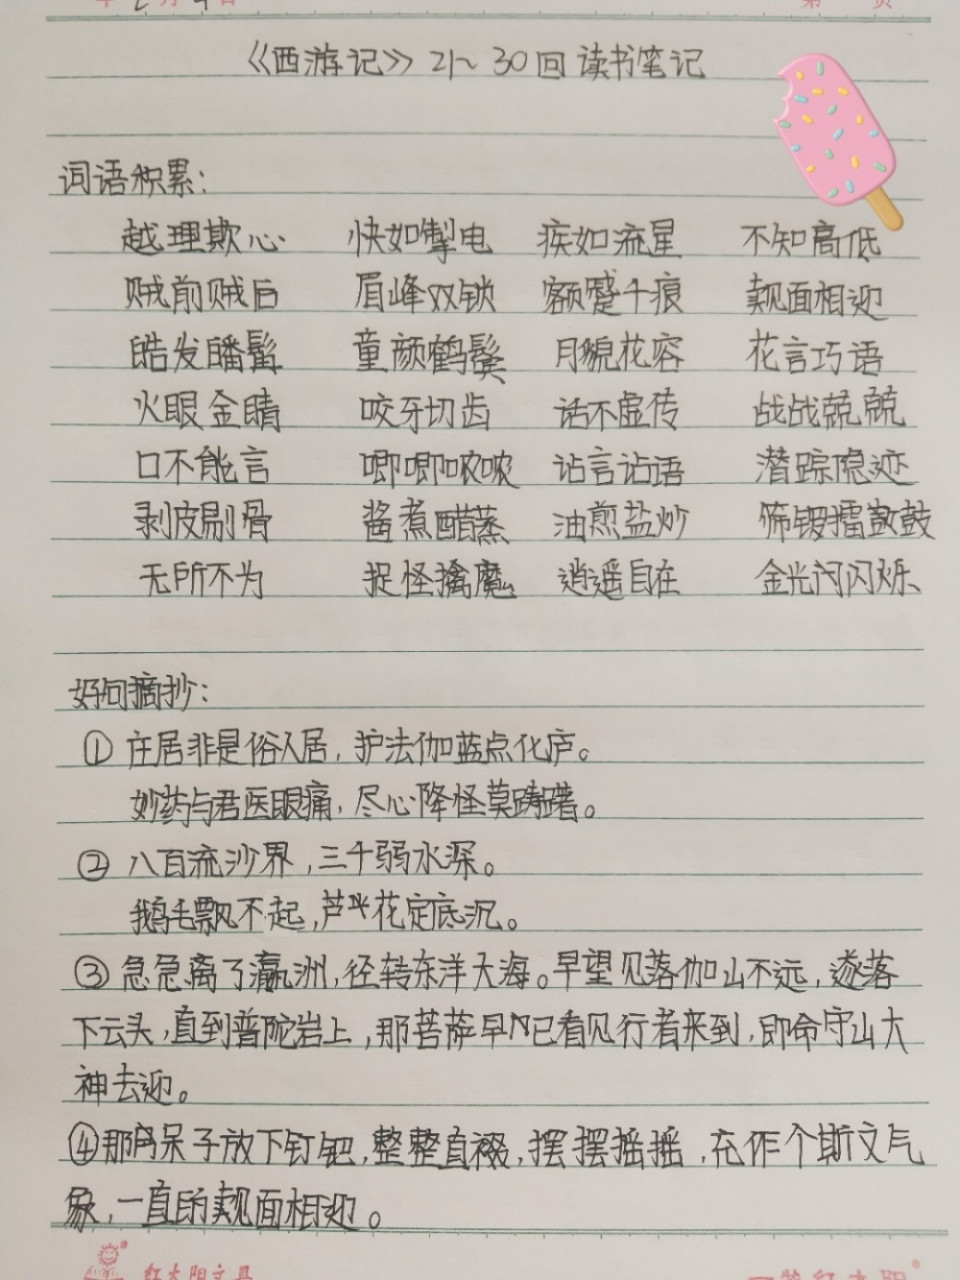 年 月 日 第 页
《西游记》21~30回读书笔记
词语积累:
越理欺心 快如掣电 疾如流星 不知高低
贼前贼后 眉峰双锁 额蹙千痕 觌面相迎
皓发皤髯 童颜鹤鬓 月貌花容 花言巧语
火眼金睛 咬牙切齿 话不虚传 战战兢兢
口不能言 唧唧哝哝 诂言诂语 潜踪隐迹
剥皮剔骨 酱煮醋蒸 油煎盐炒 筛锣擂鼓
无所不为 捉怪擒魔 逍遥自在 金光闪烁
好句摘抄:
① 庄居非是俗人居,护法伽蓝点化庐。
妙药与君医眼痛,尽心降怪莫踌躇。
② 八百流沙界,三千弱水深。
鹅毛飘不起,芦花定底沉。
③ 急急离了瀛洲,径转东洋大海。早望见落伽山不远,遂落
下云头,直到普陀岩上,那菩萨早已看见行者来到,即命守山大
神去迎。
④那呆子放下钉钯,整整直裰,摆摆摇摇,充作个斯文气
象,一直的觌面相迎。
红太阳文具